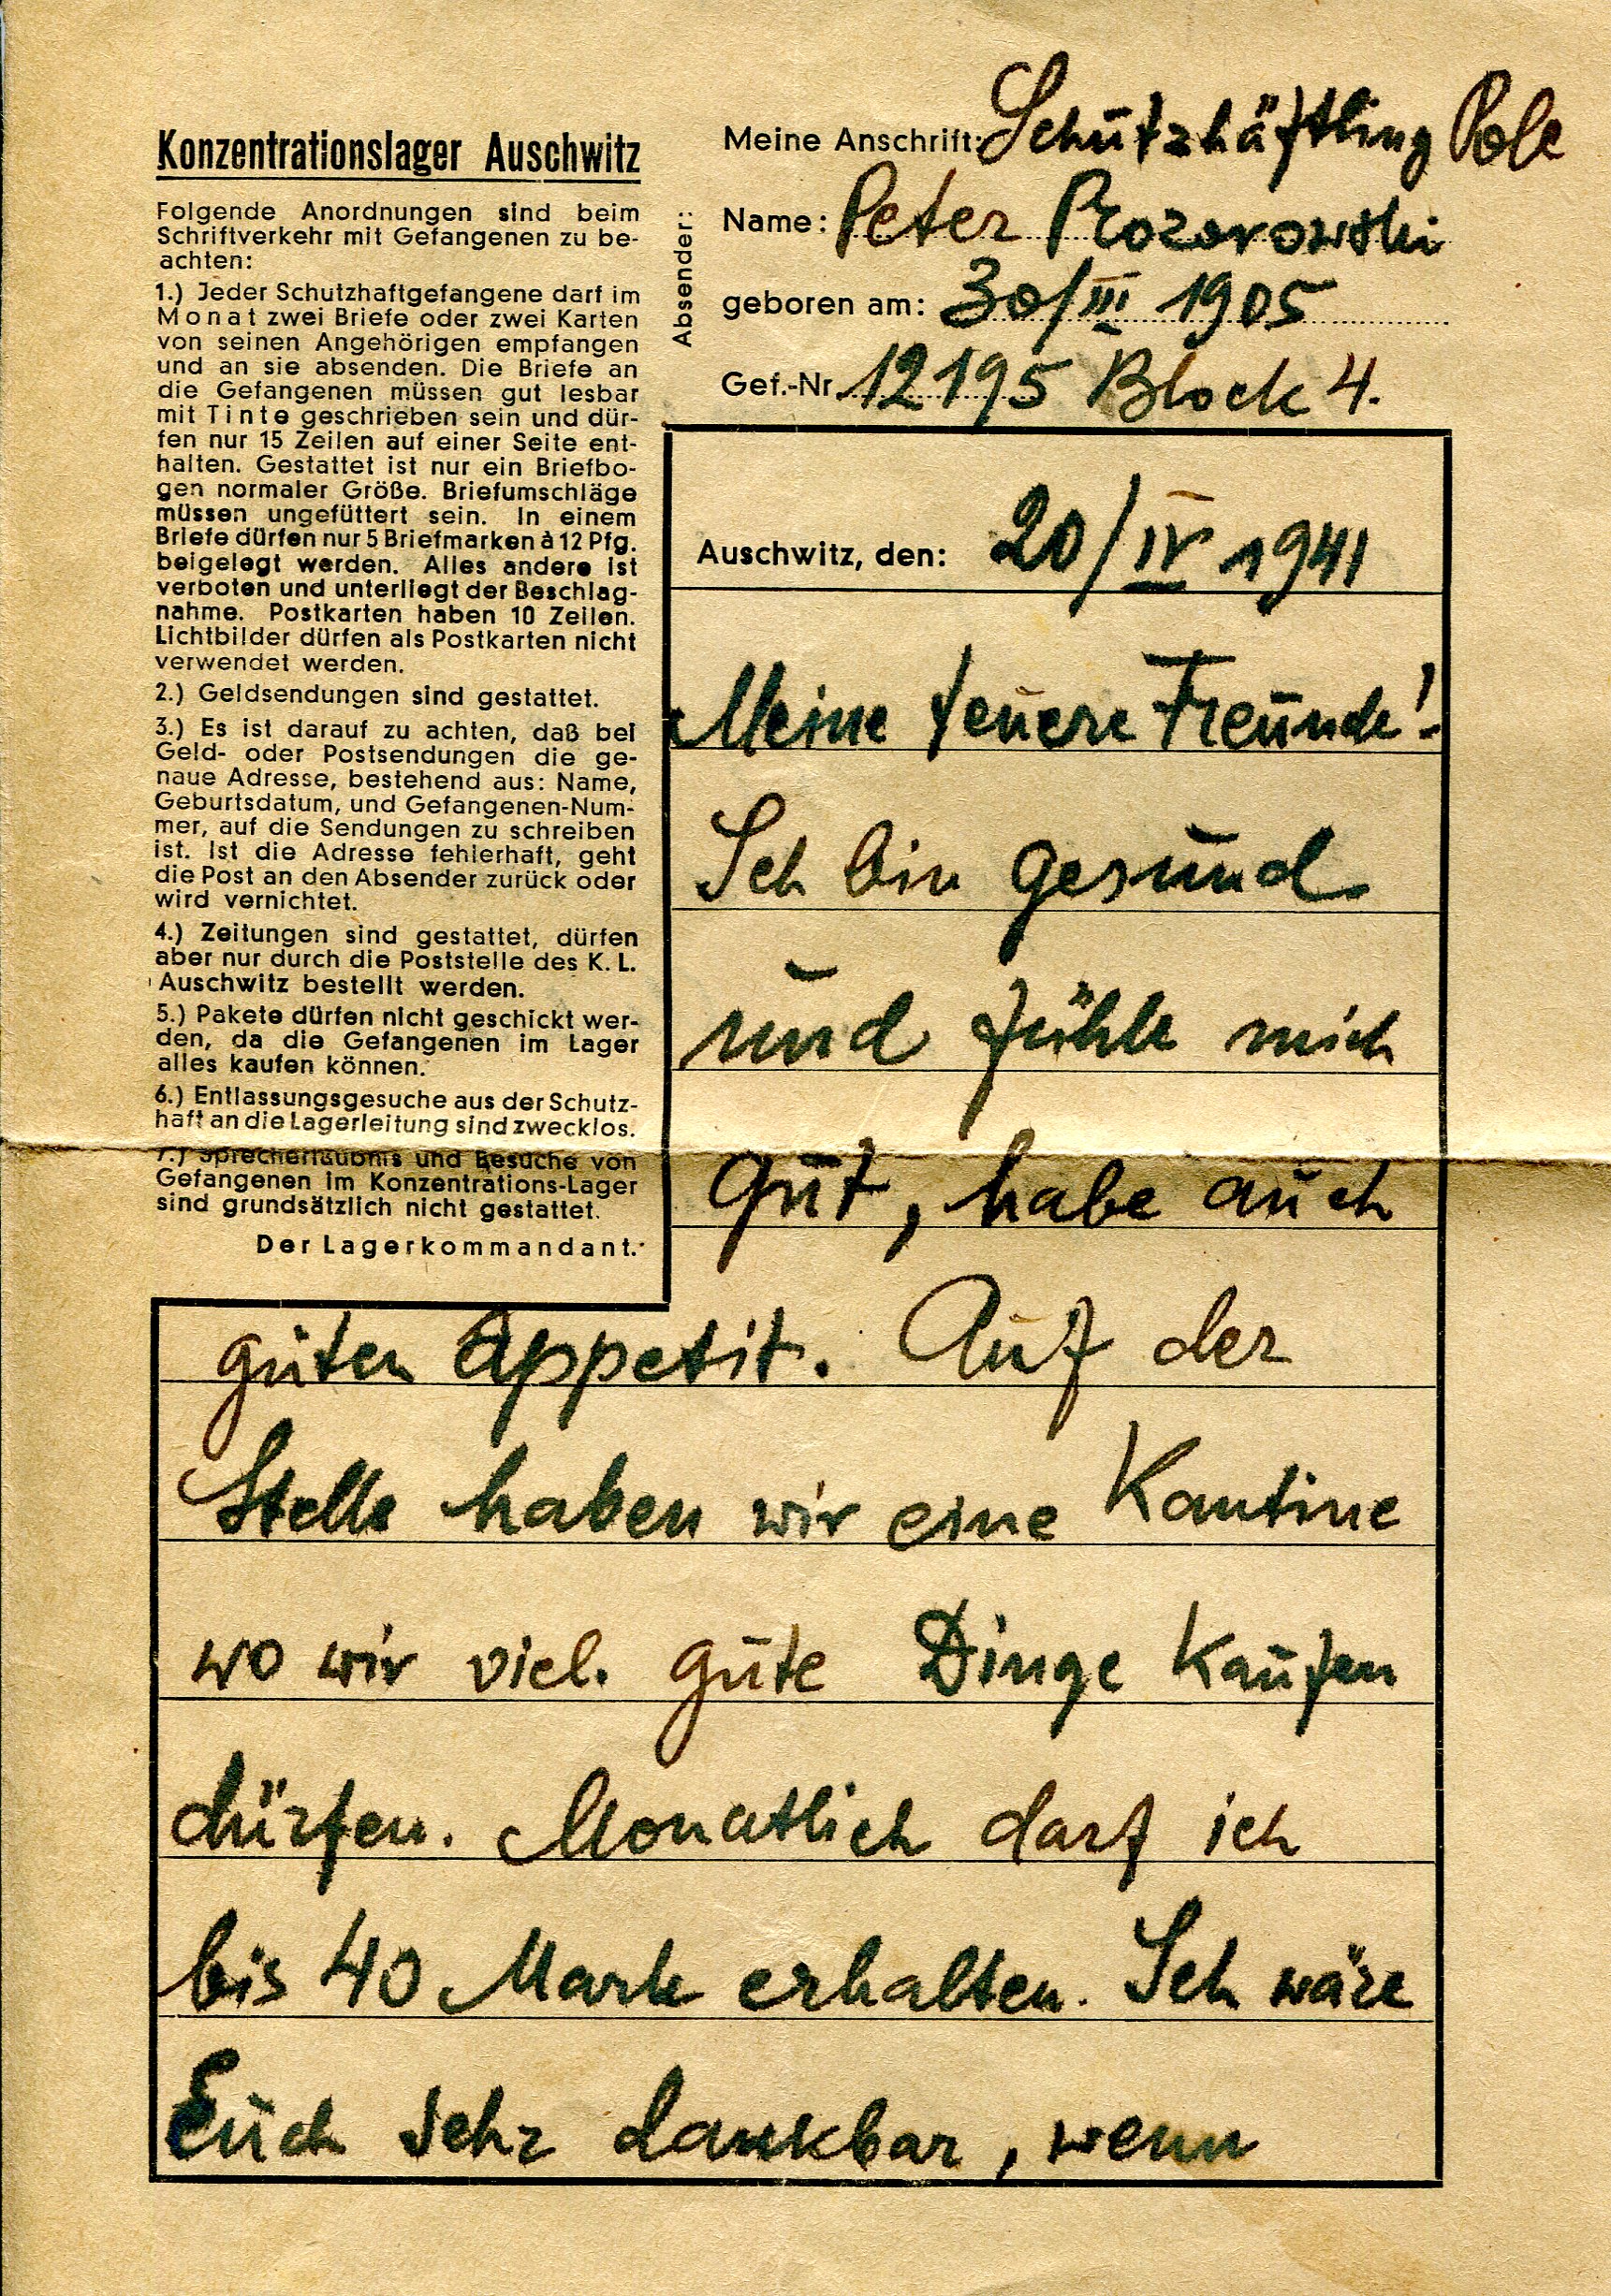 Konzentrationslager Auschwitz
Folgende Anordnungen sind beim
Schriftverkehr mit Gefangenen zu be-
achten:
1.) Jeder Schutzhaftgefangene darf im
Monat zwei Briefe oder zwei Karten
von seinen Angehörigen empfangen
und an sie absenden. Die Briefe an
die Gefangenen müssen gut lesbar
mit Tinte geschrieben sein und dür-
fen nur 15 Zeilen auf einer Seite ent-
halten. Gestattet ist nur ein Briefbo-
gen normaler Größe. Briefumschläge
müssen ungefüttert sein. In einem
Briefe dürfen nur 5 Briefmarken à 12 Pfg.
beigelegt werden. Alles andere ist
verboten und unterliegt der Beschlag-
nahme. Postkarten haben 10 Zeilen.
Lichtbilder dürfen als Postkarten nicht
verwendet werden.
2.) Geldsendungen sind gestattet.
3.) Es ist darauf zu achten, daß bei
Geld- oder Postsendungen die ge-
naue Adresse, bestehend aus: Name,
Geburtsdatum, und Gefangenen-Num-
mer, auf die Sendungen zu schreiben
ist. Ist die Adresse fehlerhaft, geht
die Post an den Absender zurück oder
wird vernichtet.
4.) Zeitungen sind gestattet, dürfen
aber nur durch die Poststelle des K. L.
Auschwitz bestellt werden.
5.) Pakete dürfen nicht geschickt wer-
den, da die Gefangenen im Lager
alles kaufen können.
6.) Entlassungsgesuche aus der Schutz-
haft an die Lagerleitung sind zwecklos.
7.) Sprecherlaubnis und Besuche von
Gefangenen im Konzentrations-Lager
sind grundsätzlich nicht gestattet.
Der Lagerkommandant.
Absender:
Meine Anschrift: Schutzhäftling Pole
Name: Peter Prozorowski
geboren am: 30/III 1905
Gef.-Nr. 12195 Block 4.
Auschwitz, den: 20/IV 1941
Meine teuere Freunde!
Ich bin gesund
und fühle mich
gut, habe auch
guten Appetit. Auf der
Stelle haben wir eine Kantine
wo wir viel. gute Dinge kaufen
dürfen. Monatlich darf ich
bis 40 Mark erhalten. Ich wäre
Euch sehr dankbar, wenn